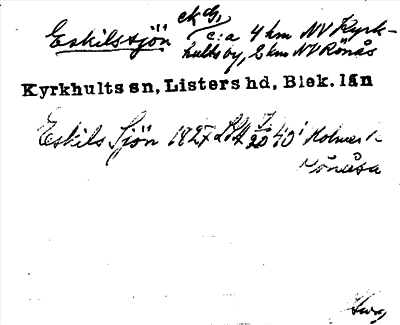 Eskilssjön ek bl, c:a 4 km NV Kyrk-
hults by, 2 km NV Rönås
Kyrkhults sn, Listers hd, Blek. län
Eskils Sjön 1827 40 i Holmen
Rönåsa